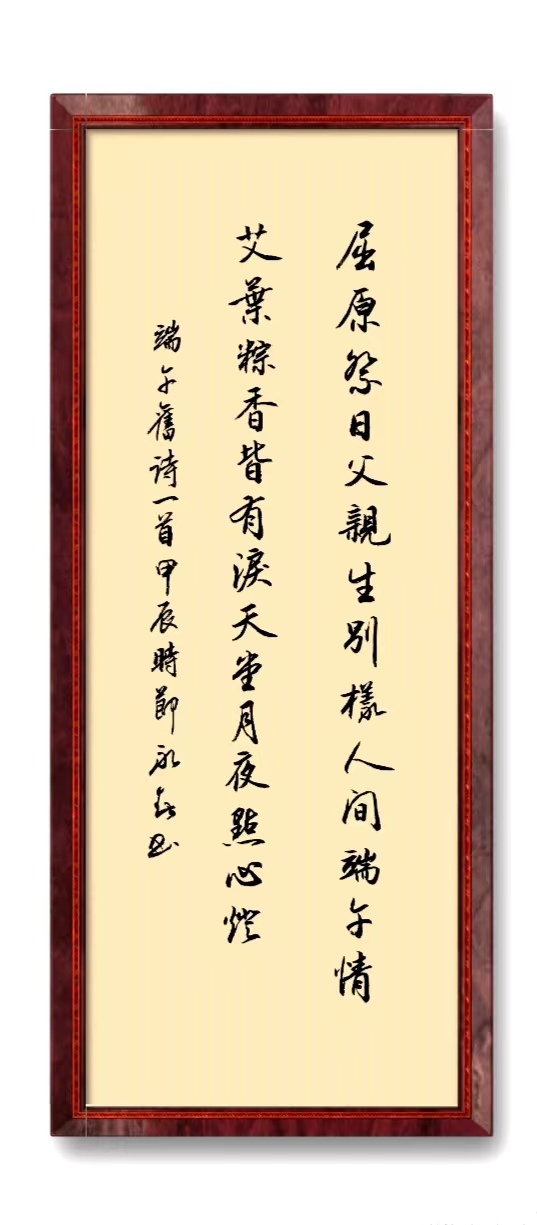 屈原祭日父親生別樣人间端午情
艾葉粽香皆有淚天堂月夜點心燈
端午舊诗一首甲辰時節永春书